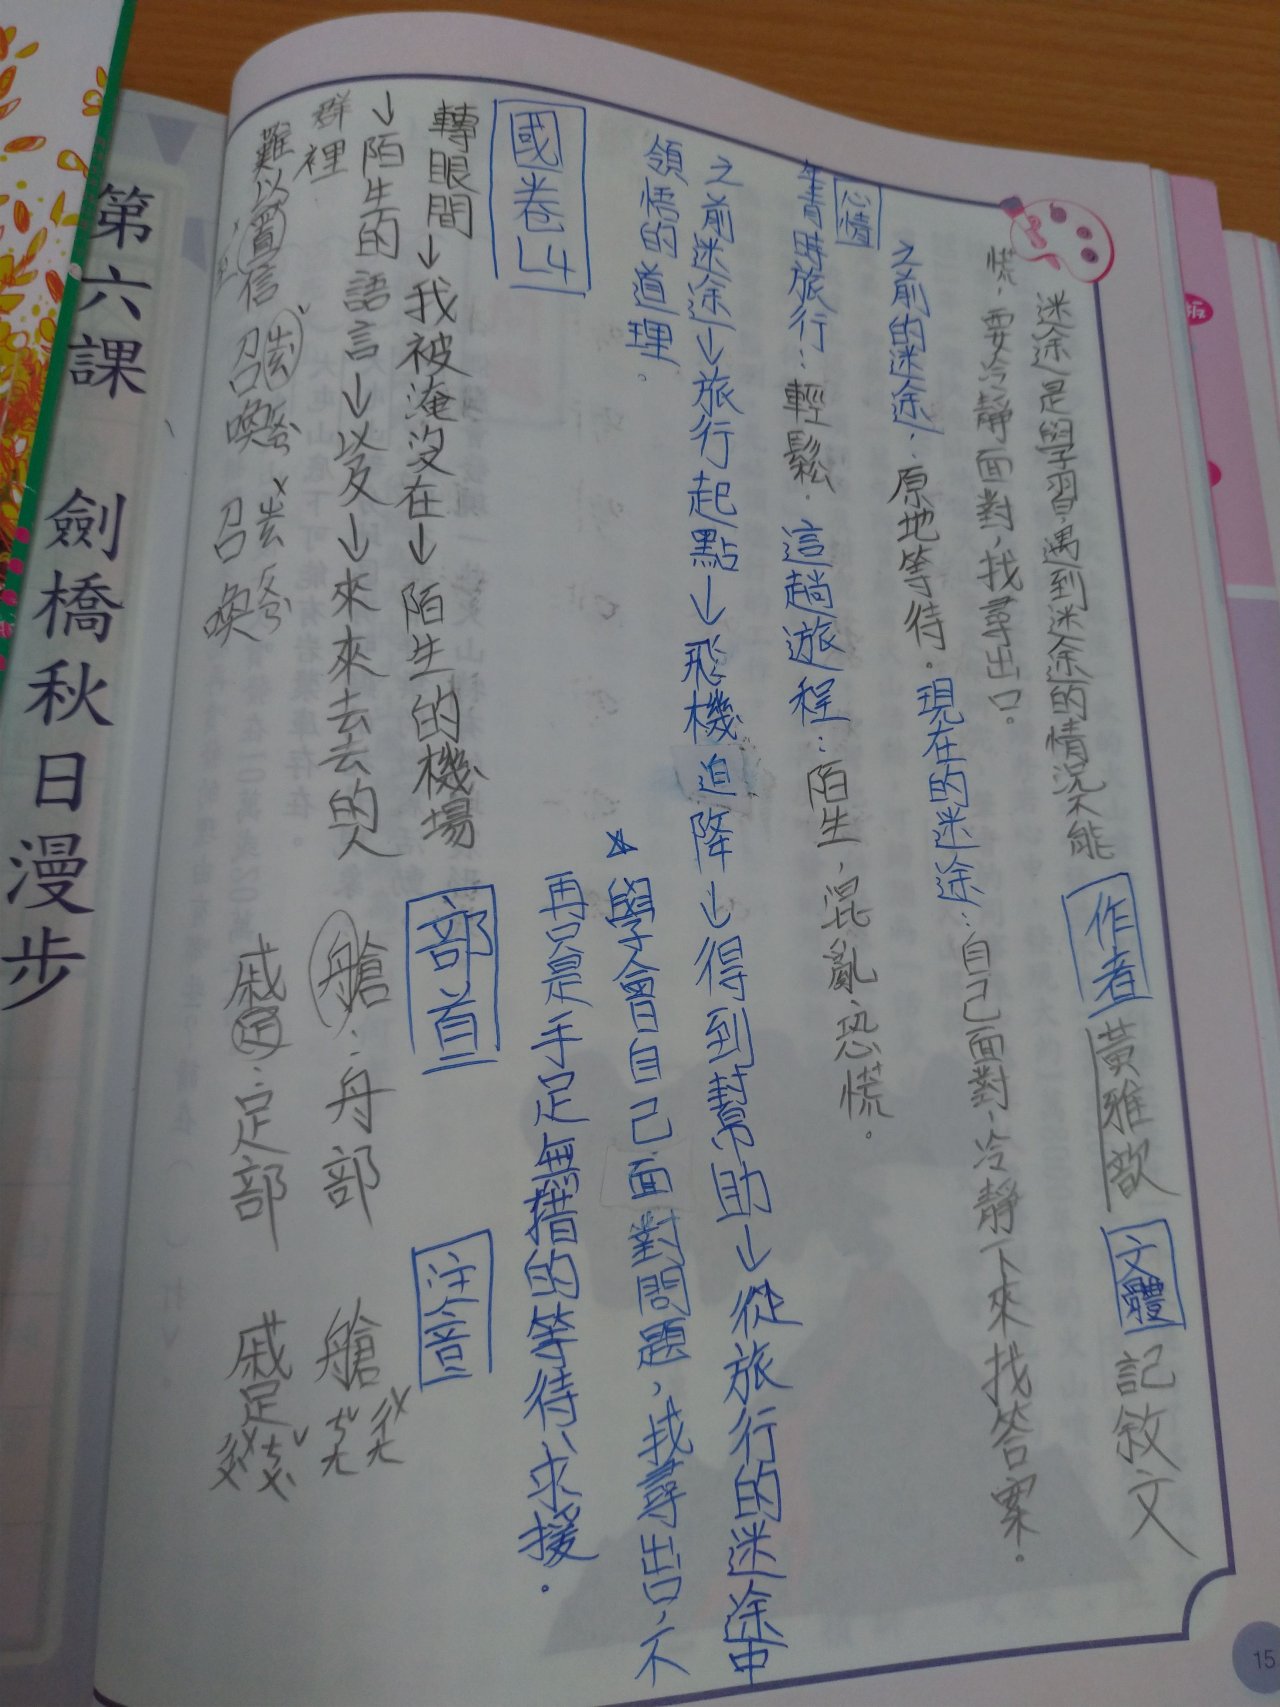 迷途是學習,遇到迷途的情況不能
慌,要冷靜面對,找尋出口。
作者 黃雅歆 文體 記敘文
之前的迷途:原地等待。現在的迷途:自己面對,冷靜下來找答案。
心情
年青時旅行:輕鬆。這趟遊程:陌生,混亂,恐慌。
之前迷途→旅行起點→飛機迫降→得到幫助→從旅行的迷途中
領悟的道理。
學會自己面對問題,找尋出口,不
再只是手足無措的等待、求援。
國卷L4
轉眼間→我被淹沒在→陌生的機場
→陌生的語言→以及→來來去去的人
群裡
難以置信 召喚 召喚
部首
艙:舟部
蹙:足部
注音
艙 ㄘㄤ ㄔㄤ
蹙
第六課 劍橋秋日漫步
版
15